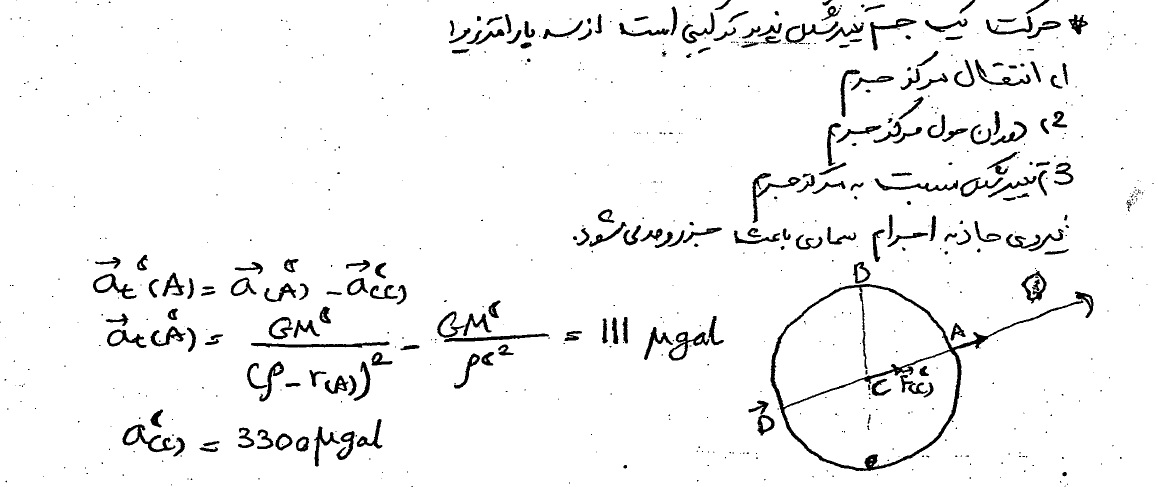 * حرکت یک جسم تغییر شکل پذیر ترکیبی است از سه پارامتر زیر:
1) انتقال مرکز جرم
2) دوران حول مرکز جرم
3) تغییر شکل نسبت به مرکز جرم
نیروی جاذبه اجرام سماوی باعث جزر و مد می شود.
a⃗ₜ^☾(A) = a⃗^☾(A) - a⃗^☾(C)
a⃗ₜ^☾(A) = GM^☾ / (ρ - r(A))² - GM^☾ / ρ^☾² = 111 μgal
a^☾(C) = 3300 μgal
B
A
C
D⃗